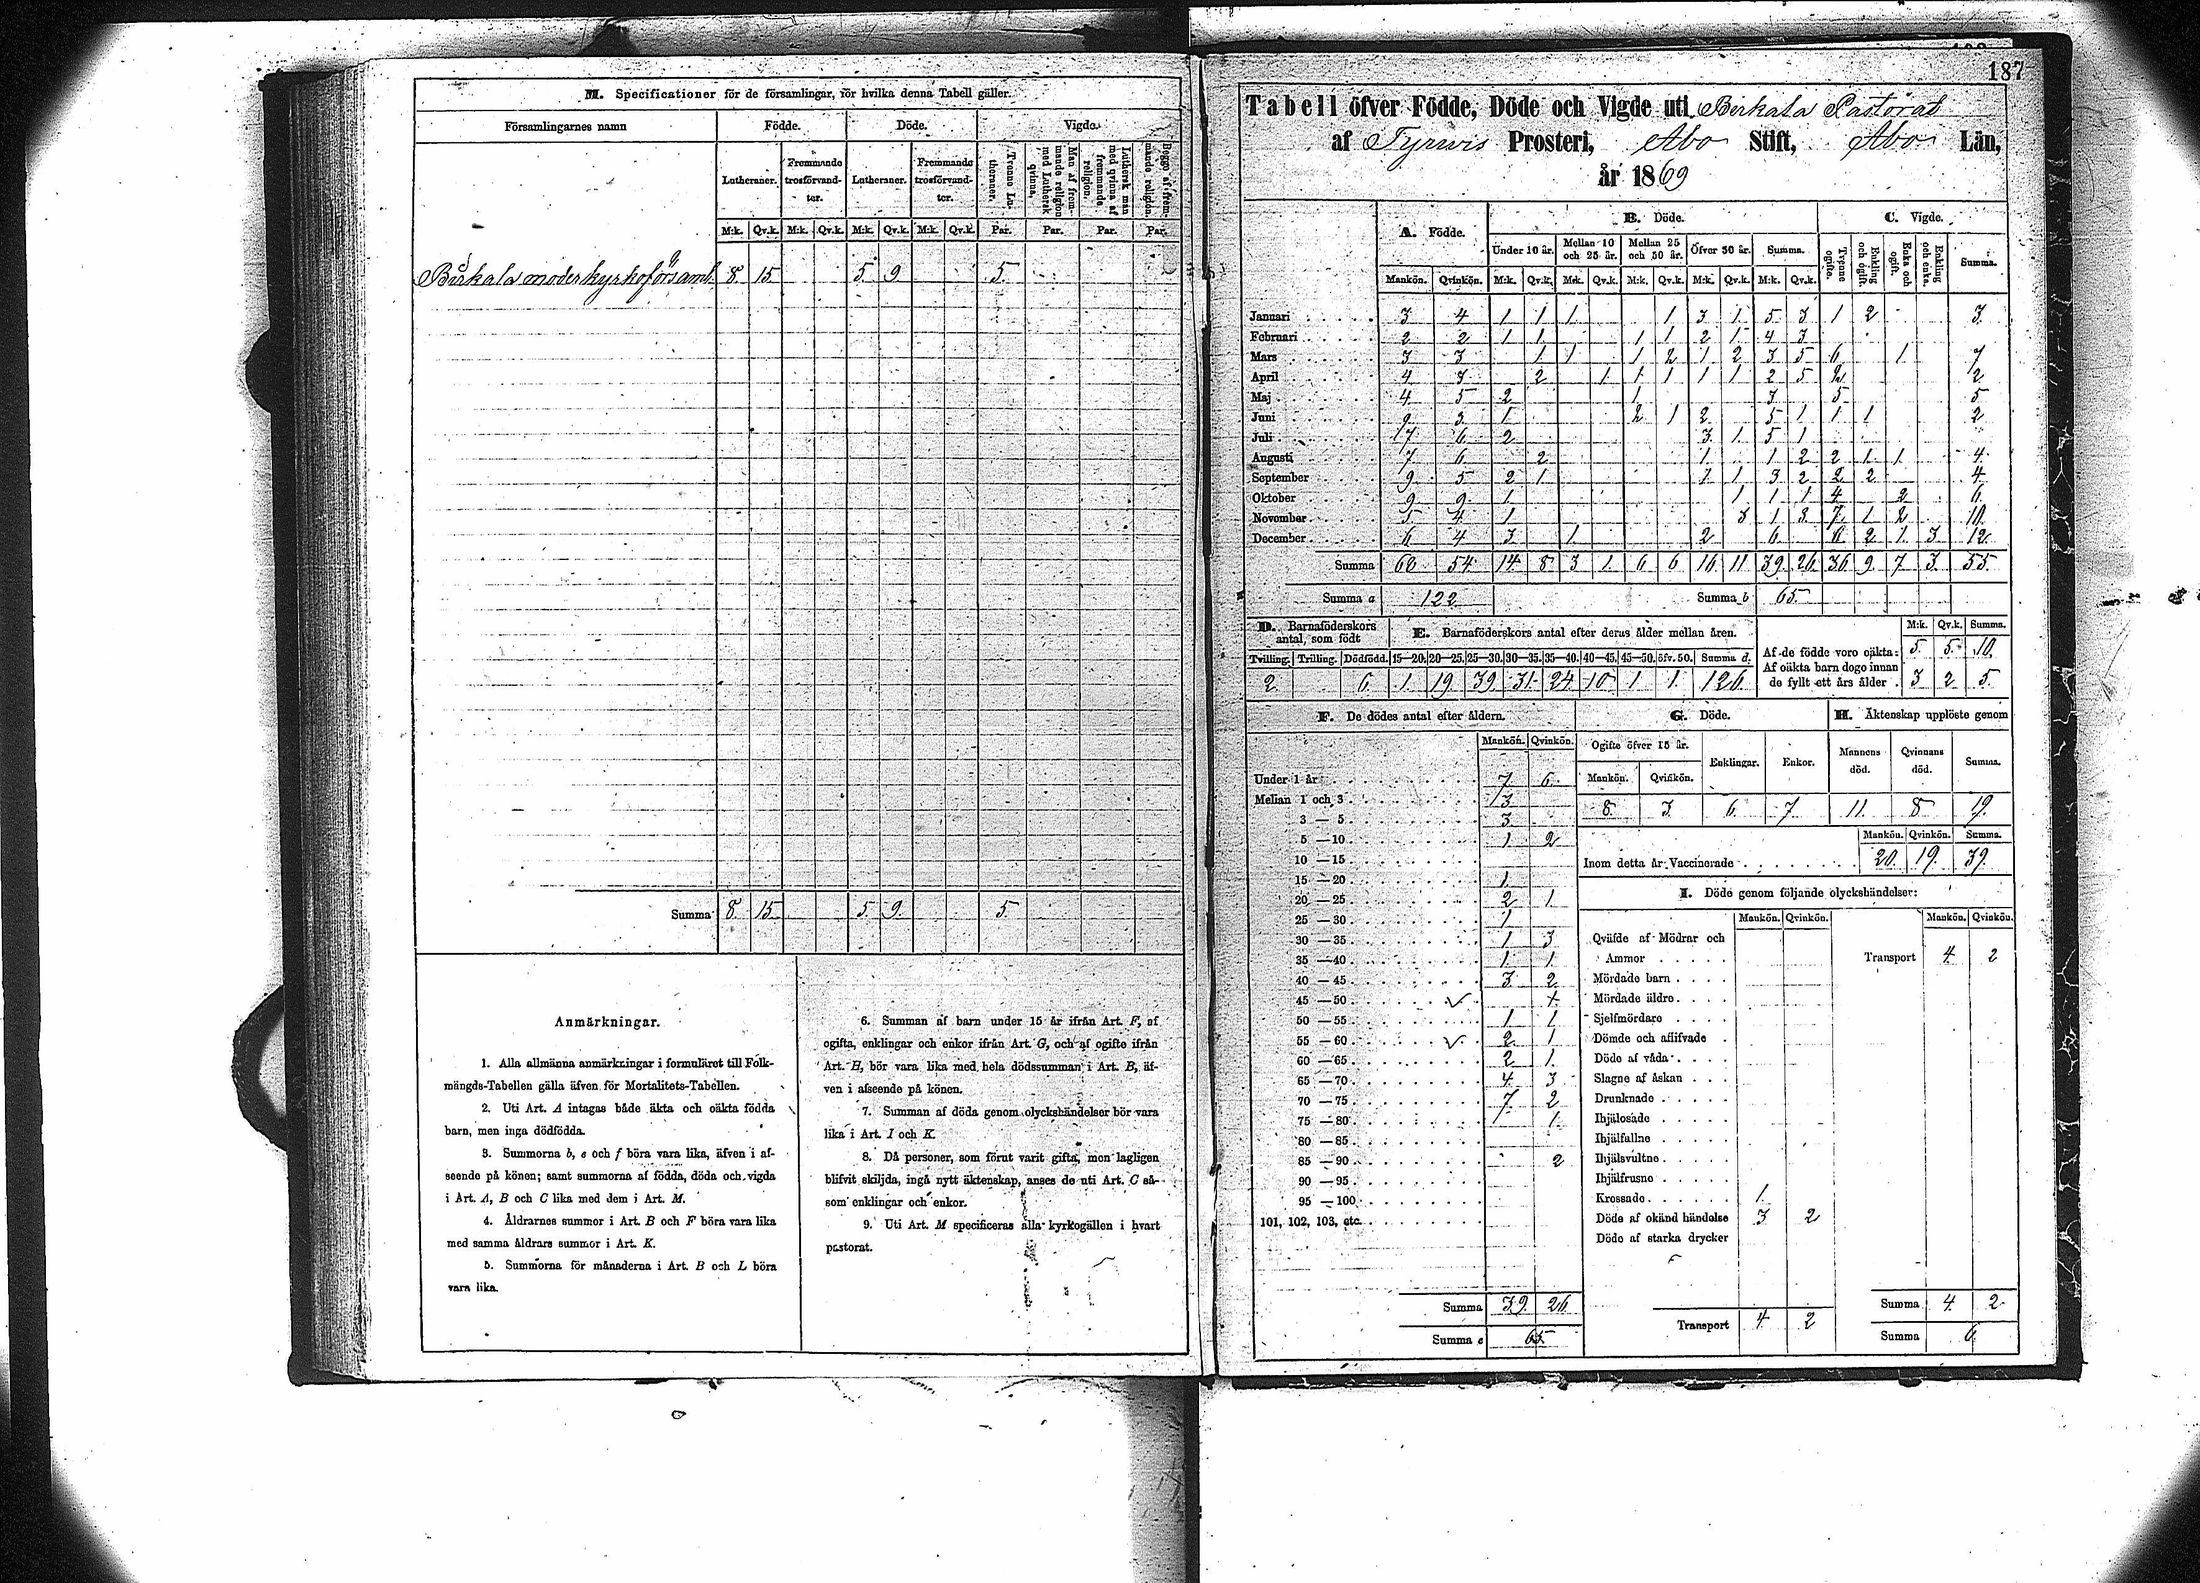 M. Specificationer för de församlingar, för hvilka denna Tabell gäller.
Församlingarnes namn Födde. Döde. Vigde.
Lutheraner. Fremmande trosförvandter. Lutheraner. Fremmande trosförvandter. Trenne Lutheraner. Man af fremmande religion med Luthersk qvinna. Luthersk man med qvinna af fremmande religion. Begge af fremmande religion.
M:k. Qv.k. M:k. Qv.k. M:k. Qv.k. M:k. Qv.k. Par. Par. Par. Par.
Birkala moderkyrkoförsaml. 8 15. 5 9. 5.
Summa 8. 15. 5 9. 5.
Anmärkningar.
1. Alla allmänna anmärkningar i formuläret till Folk-
mängds-Tabellen gälla äfven för Mortalitets-Tabellen.
2. Uti Art. A intagas både äkta och oäkta födda
barn, men inga dödfödda.
3. Summorna b, e och f böra vara lika, äfven i af-
seende på könen; samt summorna af födda, döda och vigda
i Art. A, B och C lika med dem i Art. M.
4. Åldrarnes summor i Art. B och F böra vara lika
med samma åldrars summor i Art. K.
5. Summorna för månaderna i Art. B och L böra
vara lika.
6. Summan af barn under 15 år ifrån Art. F, af
ogifta, enklingar och enkor ifrån Art. G, och af ogifte ifrån
Art. H, bör vara lika med hela dödssumman i Art. B, äf-
ven i afseende på könen.
7. Summan af döda genom olyckshändelser bör vara
lika i Art. I och K.
8. Då personer, som förut varit gifta, men lagligen
blifvit skiljda, ingå nytt äktenskap, anses de uti Art. C så-
som enklingar och enkor.
9. Uti Art. M specificeras alla kyrkogällen i hvart
pastorat.
187
Tabell öfver Födde, Döde och Vigde uti Birkala Pastorat
af Tyrvis Prosteri, Åbo Stift, Åbo Län,
år 1869
A. Födde. B. Döde. C. Vigde.
Under 10 år. Mellan 10 och 25 år. Mellan 25 och 50 år. Öfver 50 år. Summa. Trenne ogifte. Enkling och ogift. Enka och ogift. Enkling och enka. Summa.
Mankön. Qvinkön. M:k. Qv.k. M:k. Qv.k. M:k. Qv.k. M:k. Qv.k. M:k. Qv.k.
Januari 3 4 1 1 1 1 3 1 5 3 1 2 3
Februari 2 2 1 1 1 1 2 1 4 3
Mars 3 3 1 1 1 2 1 2 3 5 6 1 7
April 4 3 2 1 1 1 1 1 2 5 2 2
Maj 4 5 2 1 3 5 5
Juni 9 3 1 2 1 2 5 1 1 1 2
Juli 7 6 2 3 1 5 1
Augusti 7 6 2 1 1 2 2 1 1 4
September 9 5 2 1 1 1 3 2 2 2 4
Oktober 9 9 1 1 1 1 4 2 6
November 5 4 1 3 1 3 7 1 2 10
December 6 4 3 1 2 6 6 2 1 3 12
Summa 68 54 14 8 3 1 6 6 16 11 39 26 36 9 7 3 55
Summa a 122 Summa b 65
D. Barnaföderskors antal, som födt E. Barnaföderskors antal efter deras ålder mellan åren.
M:k. Qv.k. Summa.
Af de födde voro oäkta: 5. 5. 10.
Af oäkta barn dogo innan
de fyllt ett års ålder 3 2 5.
Tvilling. Trilling. Dödfödd. 15—20. 20—25. 25—30. 30—35. 35—40. 40—45. 45—50. öfv. 50. Summa d.
2 6 1 19 39 31 24 10 1 1 126
F. De dödes antal efter åldern.
Mankön. Qvinkön.
Under 1 år 7 6
Mellan 1 och 3 13
3 — 5 3
5 — 10 1 2
10 — 15
15 — 20 1
20 — 25 2 1
25 — 30 1
30 — 35 1 3
35 — 40 1 1
40 — 45 3 2
45 — 50
50 — 55 1 1
55 — 60 2 1
60 — 65 2 1
65 — 70 4 3
70 — 75 7 2
75 — 80 1
80 — 85
85 — 90 2
90 — 95
95 — 100
101, 102, 103, etc.
Summa 39 26
Summa e 65
G. Döde.
Ogifte öfver 15 år. Enklingar. Enkor.
Mankön. Qvinkön.
8. 3. 6. 7
H. Äktenskap upplöste genom
Mannens död. Qvinnans död. Summa.
11. 8 19.
Mankön. Qvinkön. Summa.
Inom detta år Vaccinerade 20. 19. 39.
I. Döde genom följande olyckshändelser:
Mankön. Qvinkön. Mankön. Qvinkön.
Qväfde af Mödrar och
Ammor
Transport 4 2
Mördade barn
Mördade äldre
Sjelfmördare
Dömde och aflifvade
Döde af våda
Slagne af åskan
Drunknade
Ihjälosade
Ihjälfallne
Ihjälsvultne
Ihjälfrusne
Krossade 1
Döde af okänd händelse 3 2
Döde af starka drycker
Transport 4 2
Summa 4 2
Summa 6